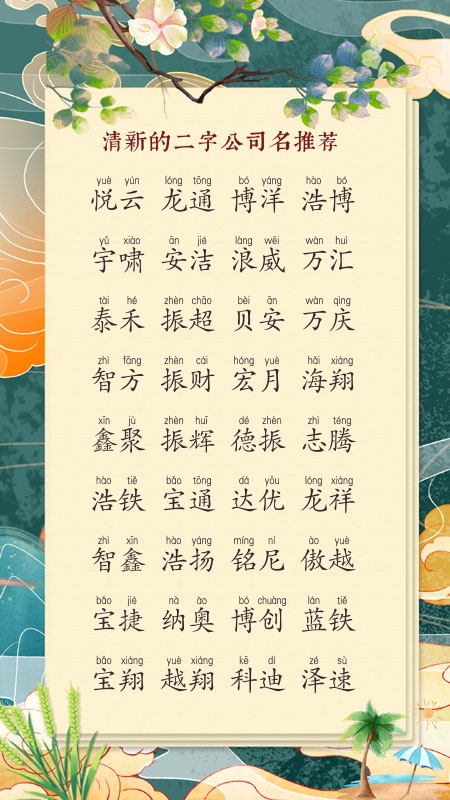 清新的二字公司名推荐
yuè yún lóng tōng bó yáng hào bó
悦云 龙通 博洋 浩博
yǔ xiào ān jié làng wēi wàn huì
宇啸 安洁 浪威 万汇
tài hé zhèn chāo bèi ān wàn qìng
泰禾 振超 贝安 万庆
zhì fāng zhèn cái hóng yuè hǎi xiáng
智方 振财 宏月 海翔
xīn jù zhèn huī dé zhèn zhì téng
鑫聚 振辉 德振 志腾
hào tiě bǎo tōng dá yōu lóng xiáng
浩铁 宝通 达优 龙祥
zhì xīn hào yáng míng ní ào yuè
智鑫 浩扬 铭尼 傲越
bǎo jié nà ào bó chuàng lán tiě
宝捷 纳奥 博创 蓝铁
bǎo xiáng yuè xiáng kē dí zé sù
宝翔 越翔 科迪 泽速